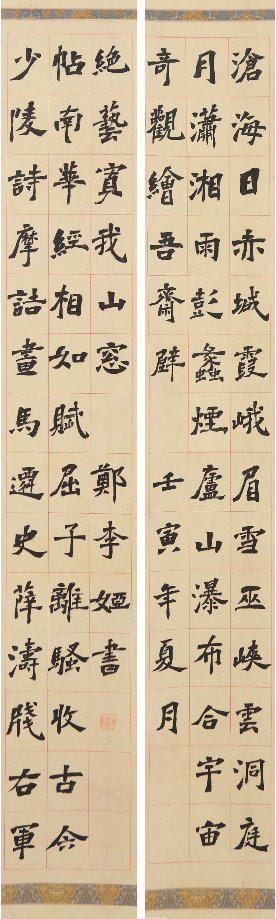 滄海日赤城霞峨眉雪巫峽雲洞庭
月瀟湘雨彭蠡煙廬山瀑布合宇宙
奇觀繪吾齋壁 壬寅年夏月
少陵詩摩詰畫馬遷史薛濤牋右軍
帖南華經相如賦屈子離騷收古今
絕藝寘我山窓 鄭李婭書